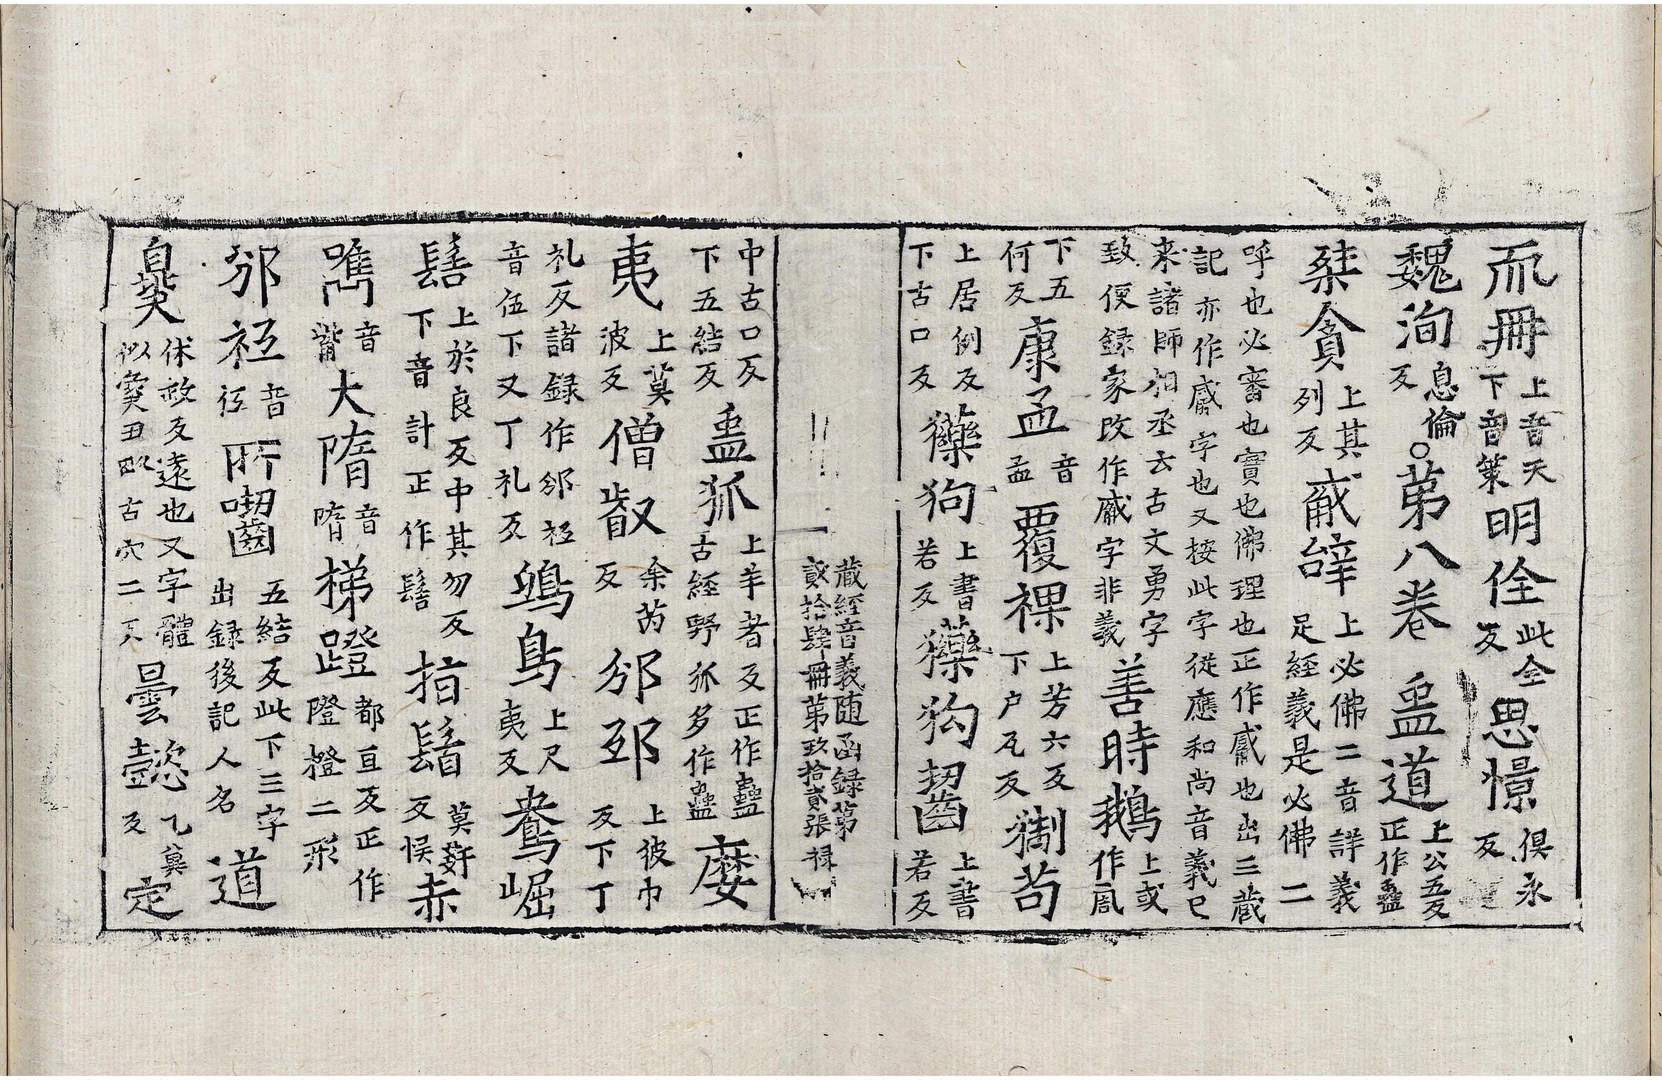 而冊上音天下音策明佺此全反思憬俱永反
魏洵息倫反○第八卷 蛊道上公五反正作蠱
桀貪上其列反 辥上必佛二音詳義足經義是必佛二
呼也必審也實也佛理也正作 也出三藏記亦作 字也又按此字從應和尚音義已
来諸師相丞云古文勇字致使録家改作 字非義善時鵝上或作凮
下五何反康孟音孟覆裸上芳六反下户瓦反 苟
上居例反下古口反䕭狗上書若反䕭狗齧上書若反
藏經音義随函録第貳拾肆冊第玖拾貳張 禄
中古口反下五結反蛊狐上羊者反正作蠱古經野狐多作蠱麼
夷上莫波反僧叡余芮反邠邳上彼巾反下丁
礼反諸録作邠袛音伍下又丁礼反鵄鳥上尺夷反鴦崛
髻上於良反中其勿反下音計正作髻指鬘莫 反悮赤
嶲音觜大隋音隋梯蹬都亘反正作隥橙二形
邠袛音佂 齧五結反此下三字出録後記人名道
㚖休敇反遠也又字體似㚖丑 古穴二反曇懿乙冀反定